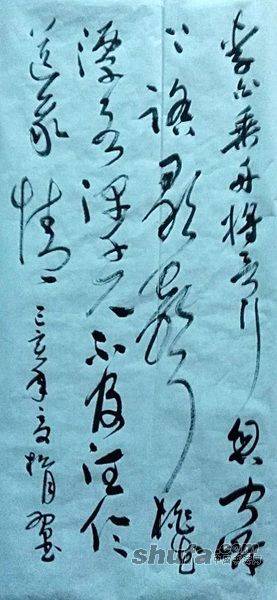 李白乘舟将欲行忽闻岸
上踏歌声桃花
潭水深千尺不及汪伦
送我情
己亥年夏
shufa